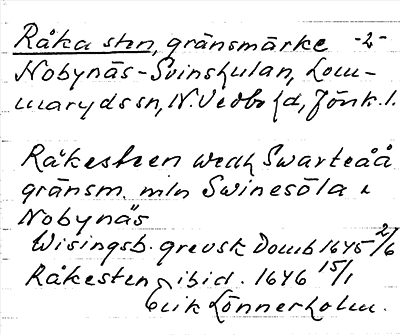 Råka stn, gränsmärke -2-
Nobynäs-Svinhulan, Lom-
marydssn, N. Vedbo hd, Jönk. l.
Råkesteen wedh Swarteåå
gränsm. mln Swinesöla &
Nobynäs
Wisingsb. grevsk Domb 1645 2/6
Råkesten ibid. 1646 15/1
Erik Lönnerholm.